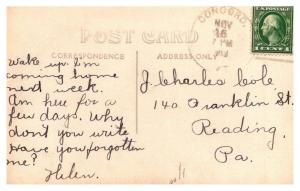 POST CARD
CORRESPONDENCE
ADDRESS ONLY
CONCORD
NOV
16
7 PM
1 CENT 1
Wake up. I'm
coming home
next week.
Am here for a
few days. Why
don't you write
Have you forgotten
me?
Helen.
J. Charles Cole
140 Franklin St.
Reading,
Pa.